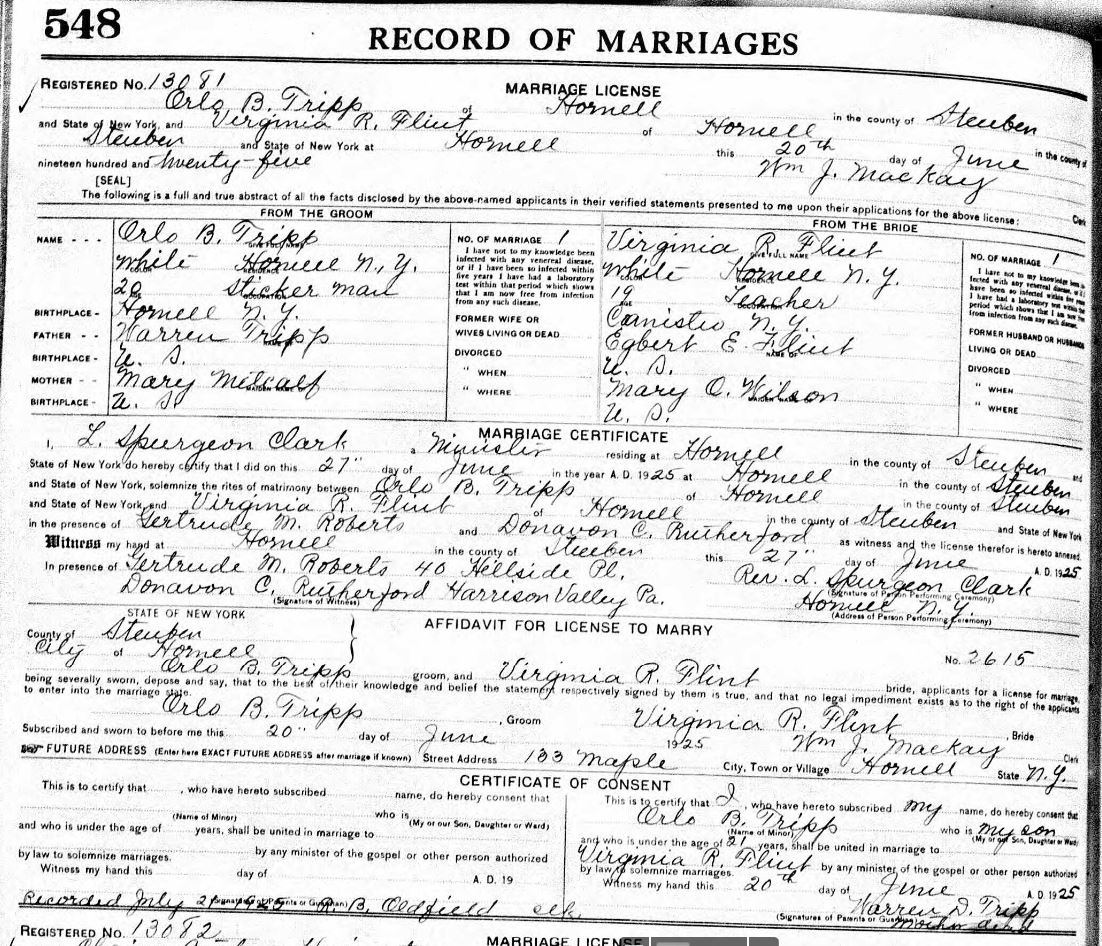 548
RECORD OF MARRIAGES
REGISTERED No. 13081
MARRIAGE LICENSE
Orlo B. Tripp of Hornell in the county of Steuben
and State of New York, and Virginia R. Flint of Hornell in the county of
Steuben and State of New York at Hornell this 20th day of June
nineteen hundred and twenty-five Wm J. MacKay
[SEAL] Clerk
The following is a full and true abstract of all the facts disclosed by the above-named applicants in their verified statements presented to me upon their applications for the above license:
FROM THE GROOM
NAME - - - Orlo B. Tripp
GIVE FULL NAME
White Hornell N. Y.
COLOR RESIDENCE
20 Sticker man
AGE OCCUPATION
BIRTHPLACE - Hornell N. Y.
FATHER - - Warren Tripp
NAME OF
BIRTHPLACE - U. S.
MOTHER - - Mary Metcalf
MAIDEN NAME OF
BIRTHPLACE - U. S.
NO. OF MARRIAGE 1
I have not to my knowledge been
infected with any venereal disease,
or if I have been so infected within
five years I have had a laboratory
test within that period which shows
that I am now free from infection
from any such disease.
FORMER WIFE OR
WIVES LIVING OR DEAD
DIVORCED
" WHEN
" WHERE
FROM THE BRIDE
Virginia R. Flint
GIVE FULL NAME
White Hornell N. Y.
COLOR RESIDENCE
19 Teacher
AGE OCCUPATION
Canisteo N. Y.
Egbert E. Flint
NAME OF
U. S.
Mary O. Wilson
MAIDEN NAME OF
U. S.
NO. OF MARRIAGE 1
I have not to my knowledge been
infected with any venereal disease,
or if I have been so infected within five
years I have had a laboratory test within
that period which shows that I am now free
from infection from any such disease.
FORMER HUSBAND OR HUSBANDS
LIVING OR DEAD
DIVORCED
" WHEN
" WHERE
MARRIAGE CERTIFICATE
I, L. Spurgeon Clark a Minister residing at Hornell in the county of Steuben and
State of New York do hereby certify that I did on this 27" day of June in the year A. D. 1925 at Hornell in the county of Steuben
and State of New York, solemnize the rites of matrimony between Orlo B. Tripp of Hornell in the county of Steuben
and State of New York, and Virginia R. Flint of Hornell in the county of Steuben and State of New York
in the presence of Gertrude M. Roberts and Donavon C. Rutherford as witness and the license therefor is hereto annexed.
Witness my hand at Hornell in the county of Steuben this 27" day of June A. D. 1925
In presence of Gertrude M. Roberts 40 Hillside Pl. Rev. L. Spurgeon Clark
(Signature of Person Performing Ceremony)
Donavon C. Rutherford Harrison Valley Pa. Hornell N. Y.
(Signature of Witness) (Address of Person Performing Ceremony)
STATE OF NEW YORK
AFFIDAVIT FOR LICENSE TO MARRY
County of Steuben
City of Hornell No. 2615
Orlo B. Tripp groom, and Virginia R. Flint bride, applicants for a license for marriage,
being severally sworn, depose and say, that to the best of their knowledge and belief the statement respectively signed by them is true, and that no legal impediment exists as to the right of the applicants
to enter into the marriage state.
Orlo B. Tripp, Groom Virginia R. Flint, Bride
Subscribed and sworn to before me this 20" day of June 1925 Wm J. MacKay Clerk
FUTURE ADDRESS (Enter here EXACT FUTURE ADDRESS after marriage if known) Street Address 133 Maple City, Town or Village Hornell State N. Y.
CERTIFICATE OF CONSENT
This is to certify that , who have hereto subscribed name, do hereby consent that
who is
(Name of Minor) (My or our Son, Daughter or Ward)
and who is under the age of years, shall be united in marriage to
by any minister of the gospel or other person authorized
by law to solemnize marriages.
Witness my hand this day of A. D. 19
(Signatures of Parents or Guardian)
This is to certify that I, who have hereto subscribed my name, do hereby consent that
Orlo B. Tripp who is my son
(Name of Minor) (My or our Son, Daughter or Ward)
and who is under the age of 21 years, shall be united in marriage to
Virginia R. Flint by any minister of the gospel or other person authorized
by law to solemnize marriages.
Witness my hand this 20th day of June A. D. 1925
Warren D. Tripp
(Signatures of Parents or Guardian) Mother dead
Recorded July 21 1925 R. B. Oldfield clk
REGISTERED No. 13082
MARRIAGE LICENSE